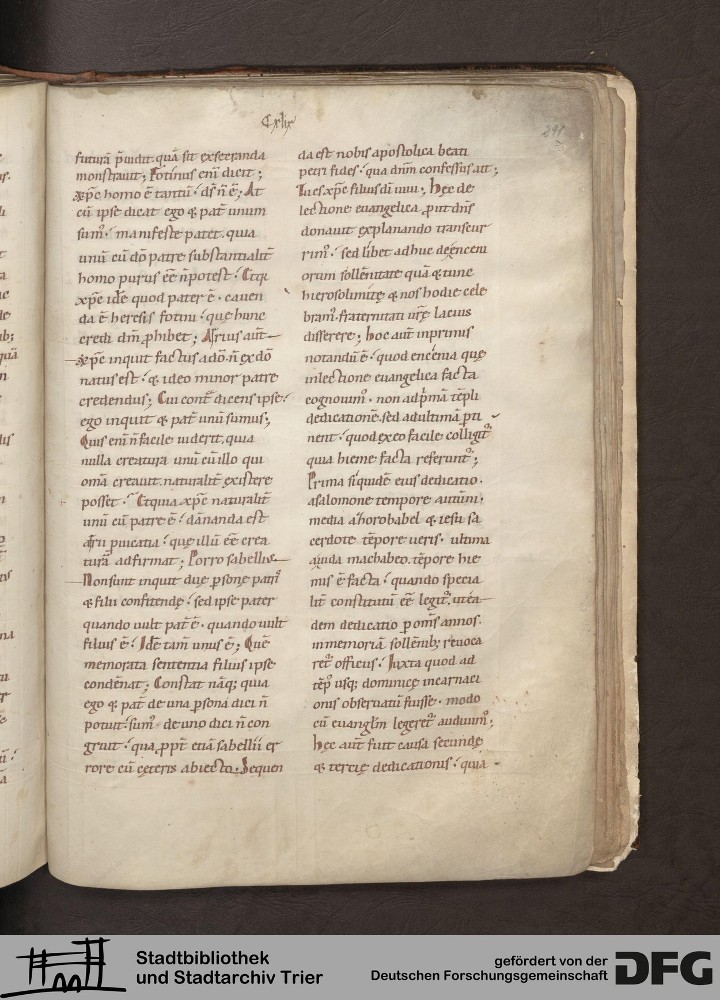 Cxlix
291
futurā p̄uidit. quā sit exsecranda
monstrauit; Fotinus eni dicit;
xp̄c homo ē tantū. ds̄ n̄ ē; At
cū ipse dicat ego & pat̄ unum
sum᷒. manifeste patet. quia
unū cū dō patre substantialit̄
homo purus eē n̄ potest. Et q̨
xp̄c idē quod pater ē. cauen
da ē heresis fotini. quę hunc
credi dm̄ ꝓhibet; Arrius aut̄
xp̄c inquit factus a dō. n̄ ex dō
natus est. & ideo minor patre
credendus; Cui cont̄ dicens ipse.
ego inquit & pat̄ unū sumus;
Quis eni n̄ facile uiderit. quia
nulla creatura unū cū illo qui
omā creauit. naturalit̄ existere
posset. Et quia xp̄c naturalit̄
unū cū patre ē. dānanda est
arrii ꝑuicatia. que illū eē crea
turā adfirmat; Porro sabellius
Non sunt inquit duę ꝑsonę patris
& filii confitendę. sed ipse pater
quando uult pat̄ ē. quando uult
filius ē. Idē tam̄ unus ē; Quē
memorata sententia filius ipse
condēnat; Constat nāq; quia
ego & pat̄ de una ꝑsona dici n̄
potuit. sum᷒ de uno dici n̄ con
gruit. qua ꝓpt̄ etiā sabellii er
rore cū cęteris abiecto. Sequen
da est nobis apostolica beati
petri fides. qua dnm̄ confessus ait;
Tu es xp̄c filius dī uiui; Hęc de
lectione euangelica ꝓut dn̄s
donauit explanando transcur
rim᷒. sed libet adhuc de encenı
orum sollēnitate quā & tunc
hierosolimitę & nos hodie cele
bram᷒. fraternitati urę̄ latius
disserere; hoc aut̄ inprimis
notandū ē. quod encenia quę
in lectione euangelica facta
cognouim᷒. non ad p̄mā tēpli
dedicationē. sed ad ultimā ꝑti
nent. quod ex eo facile colligit᷑
quia hieme facta referunt᷑;
Prima siquidē eius dedicatio.
a salomone tempore autūni.
media a zhorobabel & iesu sa
cerdote tēpore ueris. ultima
a iuda machabeo. tēpore hie
mis ē facta. quando specia
lit̄ constitutū eē legit᷑. ut ea
dem dedicatio ꝑ om̄s annos.
in memoriā sollēnib; reuoca
ret᷑ officiis. Iuxta quod ad
tēp᷒ usq; dominicę incarnati
onis obseruatū fuisse. modo
cū euangl̄m legeret᷑ audiuim᷒;
hęc aut̄ fuit causa secundę
& tercię dedicationis. quia
Stadtbibliothek
und Stadtarchiv Trier
gefördert von der
Deutschen Forschungsgemeinschaft
DFG